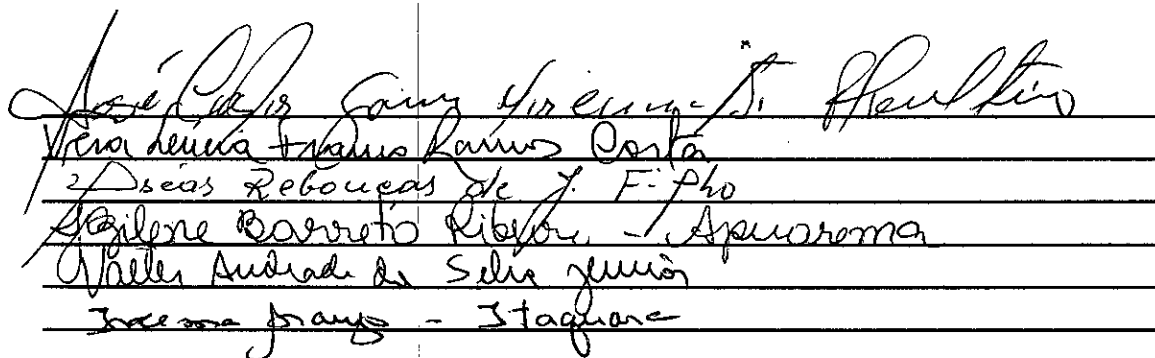 José Carlos
Vera Lúcia Franco Ramos Costa
Oséas Rebouças de J. Filho
Barreto Ribeiro - Apuarema
Valter Andrade da Silva Junior
Iracema Araujo - Itaquara